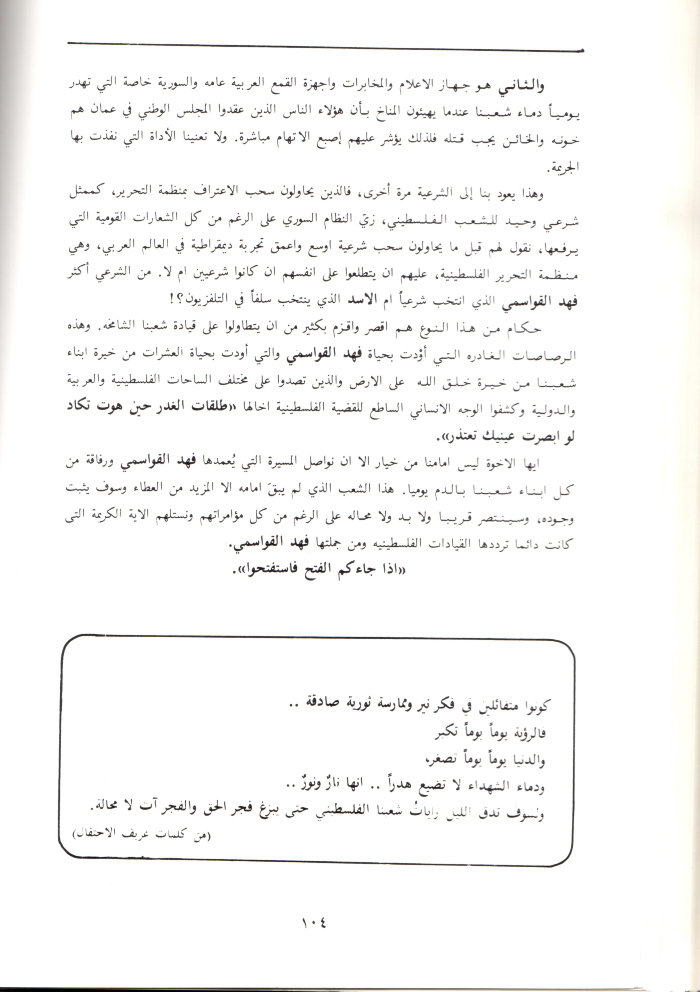 والثاني هو جهاز الاعلام والمخابرات واجهزة القمع العربية عامه والسورية خاصة التي تهدر
يومياً دماء شعبنا عندما يهيئون المناخ بأن هؤلاء الناس الذين عقدوا المجلس الوطني في عمان هم
خونه والخائن يجب قتله فلذلك يؤشر عليهم إصبع الاتهام مباشرة. ولا تعنينا الأداة التي نفذت بها
الجريمة.
وهذا يعود بنا إلى الشرعية مرة أخرى، فالذين يحاولون سحب الاعتراف بمنظمة التحرير، كممثل
شرعي وحيد للشعب الفلسطيني، زيّ النظام السوري على الرغم من كل الشعارات القومية التي
يرفعها، نقول لهم قبل ما يحاولون سحب شرعية اوسع واعمق تجربة ديمقراطية في العالم العربي، وهي
منظمة التحرير الفلسطينية، عليهم ان يتطلعوا على انفسهم ان كانوا شرعيين ام لا. من الشرعي أكثر
فهد القواسمي الذي انتخب شرعياً ام الاسد الذي ينتخب سلفاً في التلفزيون؟!
حكام من هذا النوع هم اقصر واقزم بكثير من ان يتطاولوا على قيادة شعبنا الشامخه. وهذه
الرصاصات الغادره التي أؤدت بحياة فهد القواسمي والتي أودت بحياة العشرات من خيرة ابناء
شعبنا من خيرة خلق الله على الارض والذين تصدوا على مختلف الساحات الفلسطينية والعربية
والدولية وكشفوا الوجه الانساني الساطع للقضية الفلسطينية اخالها «طلقات الغدر حين هوت تكاد
لو ابصرت عينيك تعتذر».
ايها الاخوة ليس امامنا من خيار الا ان نواصل المسيرة التي يُعمدها فهد القواسمي ورفاقة من
كل ابناء شعبنا بالدم يوميا. هذا الشعب الذي لم يبقَ امامه الا المزيد من العطاء وسوف يثبت
وجوده، وسينتصر قريبا ولا بد ولا محاله على الرغم من كل مؤامراتهم ونستلهم الاية الكريمة التى
كانت دائما ترددها القيادات الفلسطينيه ومن جملتها فهد القواسمي.
«اذا جاءكم الفتح فاستفتحوا».
كونوا متفائلين في فكر نير وممارسة ثورية صادقة ..
فالرؤية يوماً يوماً تكبر
والدنيا يوماً يوماً تصغر،
ودماء الشهداء لا تضيع هدراً .. انها نارٌ ونورٌ ..
ولسوف تدق الليل راياتُ شعبنا الفلسطيني حتى يبزغ فجر الحق والفجر آت لا محالة.
(من كلمات عريف الاحتفال)
١٠٤